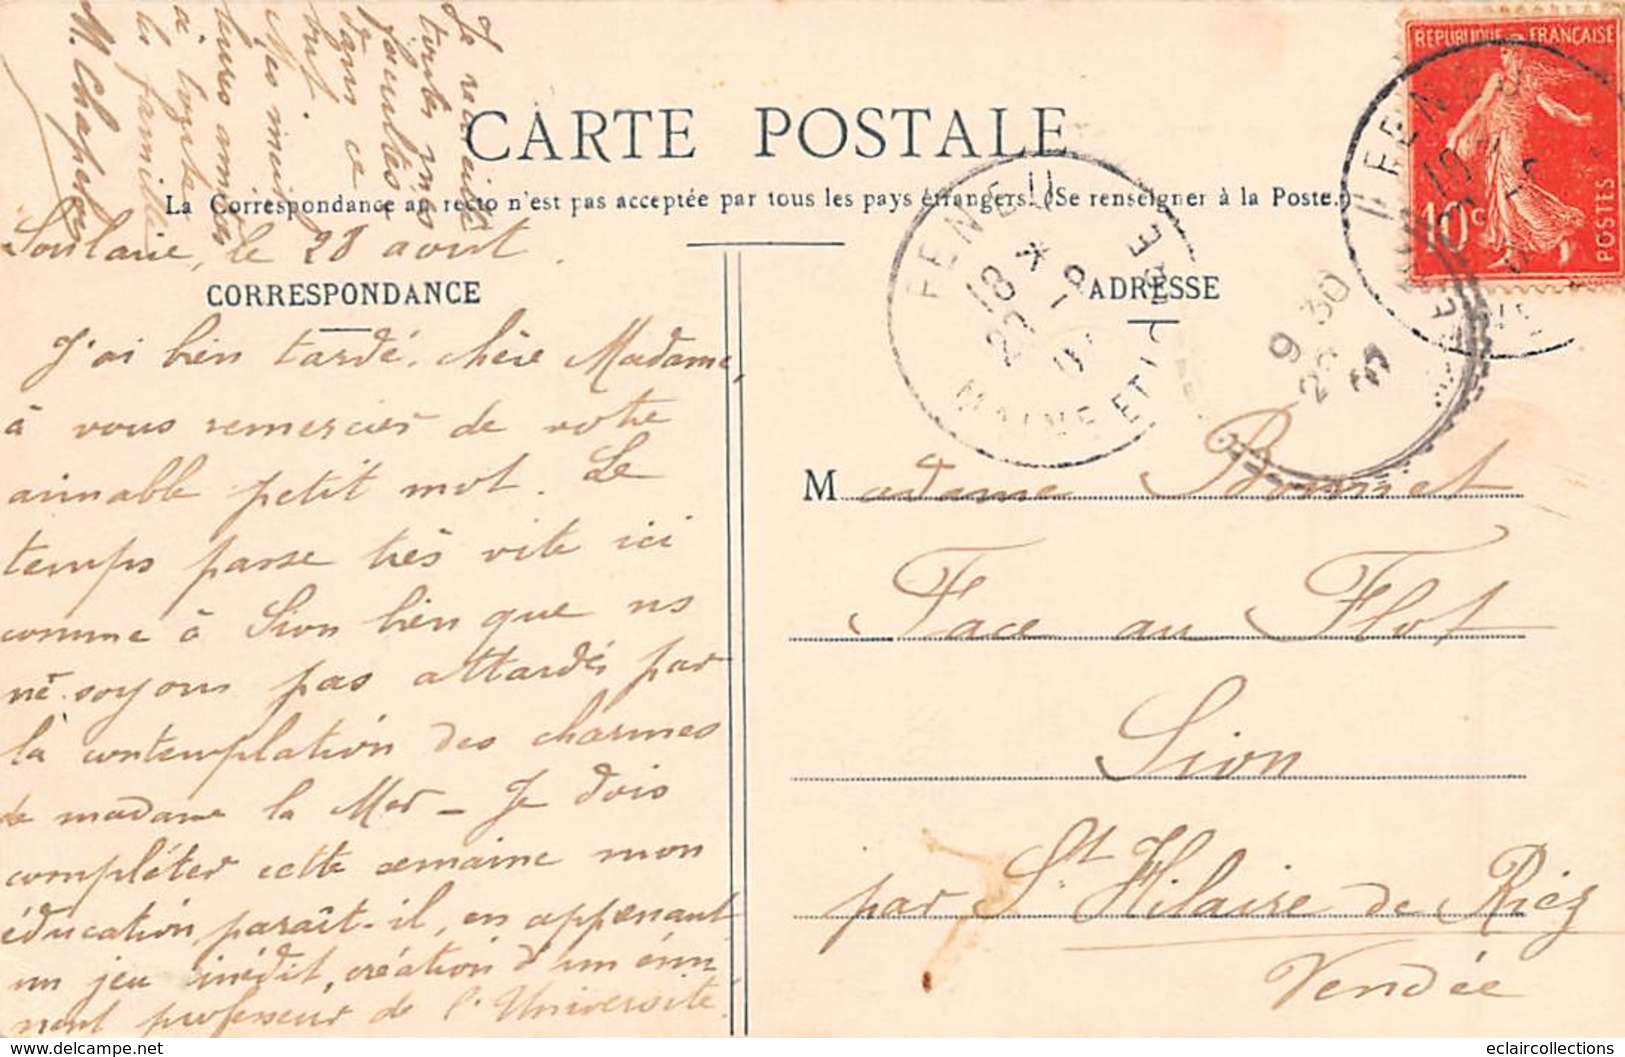 CARTE POSTALE
La Correspondance au recto n'est pas acceptée par tous les pays étrangers. (Se renseigner à la Poste.)
CORRESPONDANCE
ADRESSE
Soulaire, le 28 août.
J'ai bien tardé, chère Madame,
à vous remercier de votre
aimable petit mot. Le
temps passe très vite ici
comme à Sion bien que ns
ne soyons pas attardés par
la contemplation des charmes
de madame la Mer - Je dois
compléter cette semaine mon
éducation, paraît-il, en apprenant
un jeu inédit, création d'un émi-
nent professeur de l'Université.
Je recueille
toutes mes
facultés
dans ce
but.
Mes meil-
leures amitiés
à toute
la famille
M. Chaperon
Madame Bonnet
Face au Flot
Sion
par St Hilaire de Riez
Vendée
REPUBLIQUE FRANÇAISE
10c
POSTES
FENEU
18
MAINE ET LOIRE
FENEU
9 30
www.delcampe.net
eclaircollections